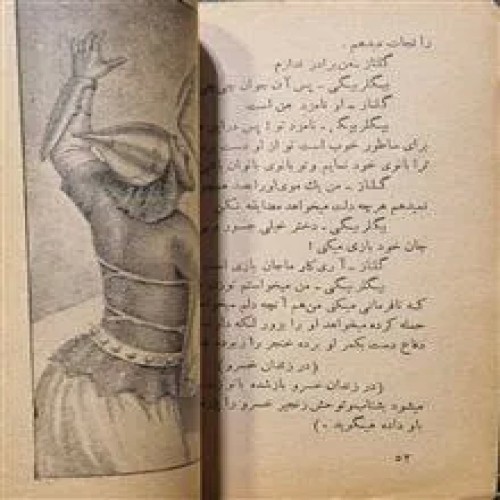 را نجات میدهم.
گلناز ـ من برادر ندارم
بیگلر بیگی ـ پس آن جوان
گلناز ـ او نامزد من است
بیگلر بیگی ـ نامزد تو! پس در این
برای ما طور خوب است تو از او دست
ترا بانوی خود نمایم و تو بانوی بانوان
گلناز ـ من یك موی او را بصد
نمیدهم هر چه دلت میخواهد مضایقه نکن
بیگلر بیگی ـ دختر خیلی جسور
جان خود بازی میکی!
گلناز ـ آری کار ما جان بازی است
بیگلر بیگی ـ من میخواستم
که نافرمانی میکی من هم آنچه دلم
حمله کرده میخواهد او را بزور لکه دار
دفاع دست بکمر او برده خنجر را
(در زندان خسرو)
(در زندان خسرو باز شده
میشود بشتاب و توحش زنجیر خسرو را
باو داده میگوید ـ)
۵۲